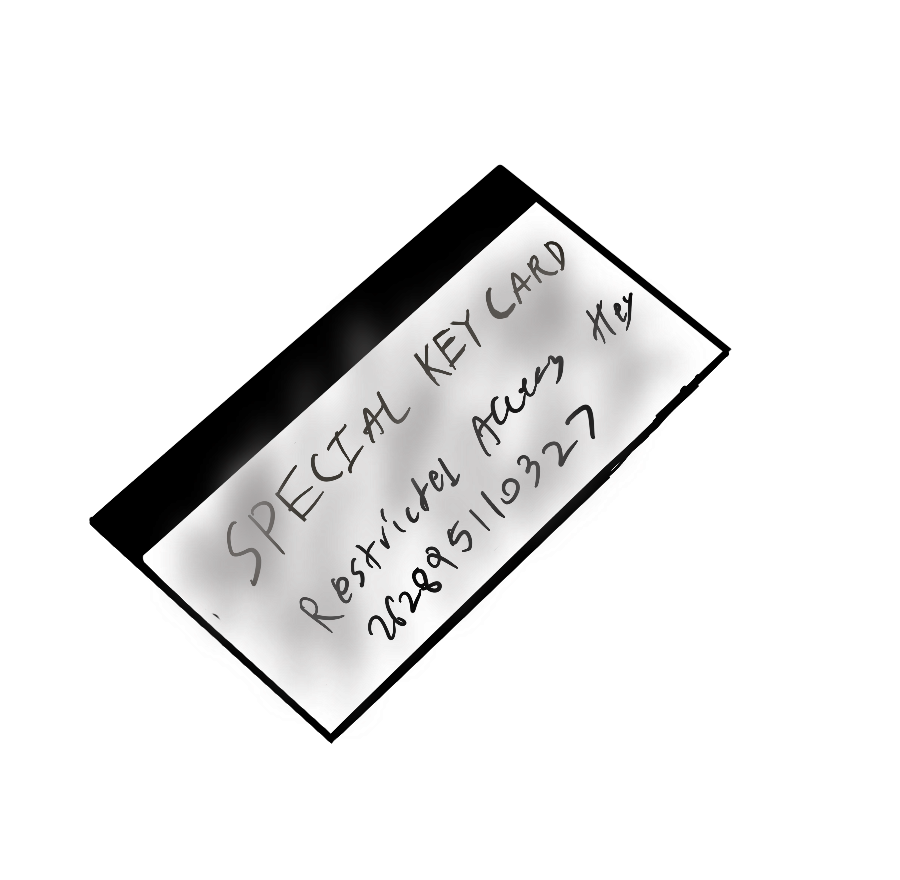 SPECIAL KEY CARD
Restricted Access Key
262895110327